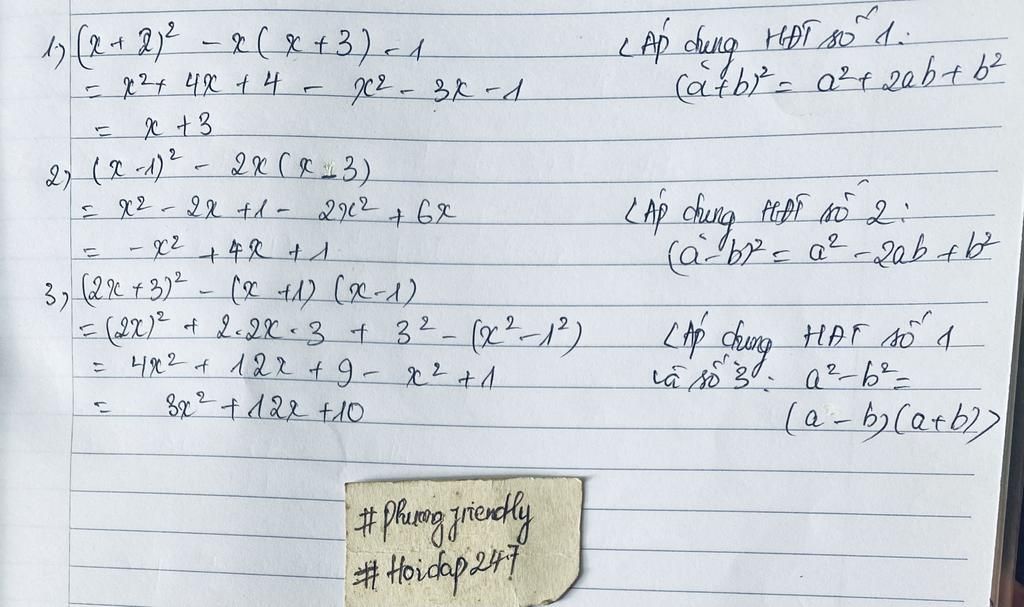 1, (x + 2)² - x ( x + 3) - 1
= x² + 4x + 4 - x² - 3x - 1
= x + 3
(Áp dụng HĐT số 1:
(a+b)² = a² + 2ab + b²
2, (x - 1)² - 2x ( x - 3)
= x² - 2x + 1 - 2x² + 6x
= - x² + 4x + 1
(Áp dụng HĐT số 2:
(a - b)² = a² - 2ab + b²
3, (2x + 3)² - (x + 1) (x - 1)
= (2x)² + 2.2x.3 + 3² - (x² - 1²)
= 4x² + 12x + 9 - x² + 1
= 3x² + 12x + 10
(Áp dụng HĐT số 1
và số 3: a² - b² =
(a - b)(a + b))
# Phuong friendly
# Hoidap247